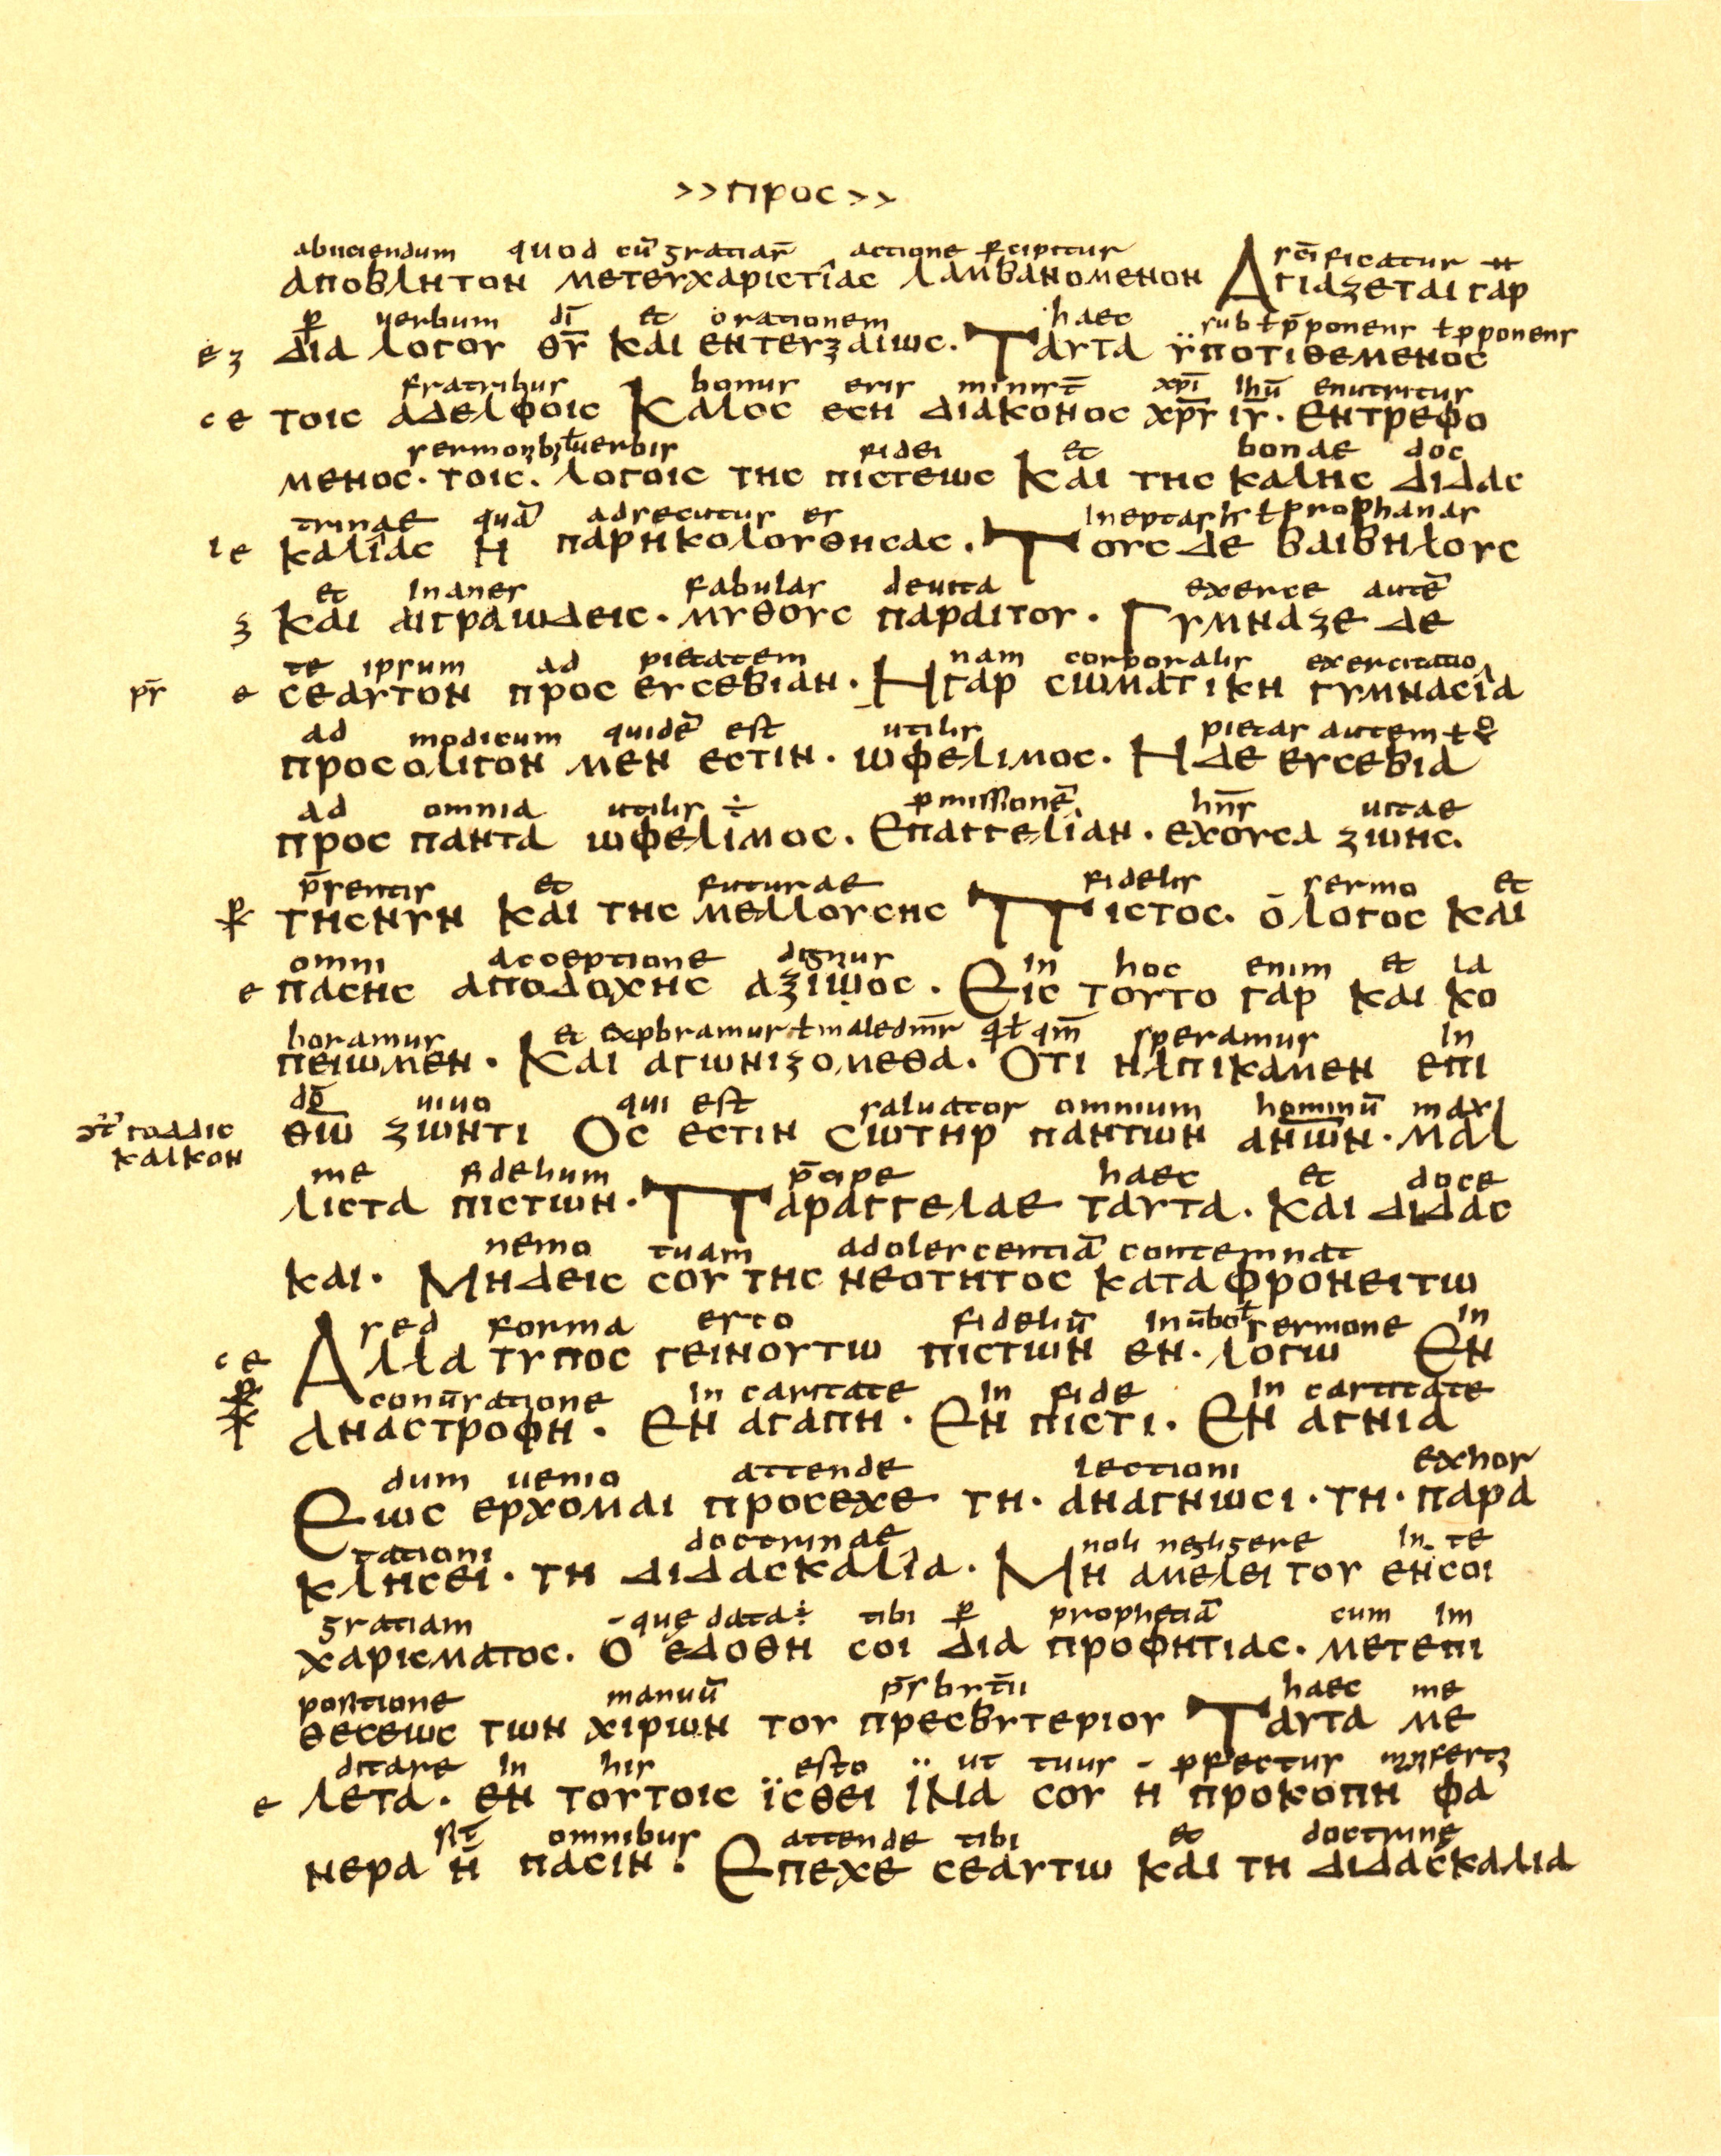 >>προς>>
abiciendum quod cū gratiar̄ actione ꝑcipitur sc̄ificatur
αποβλητον μετευχαριστιας λαμβανομενον Αγιαζεται γαρ
ꝑ uerbum dī et orationem haec sub ł p̄ponens ł ꝓponens
εζ δια λογου θ̅υ̅ και εντευζαιως. Ταυτα ϋποτιθεμενος
fratribus bonus eris minist̄ xp̄i ihū enutritus
σε τοις αδελφοις Καλος εση διακονος χ̅ρ̅υ̅ ι̅υ̅. Εντρεφο
sermonibꝫ ł uerbis fidei et bonae doc
μενος. τοις. λογοις της πιστεως Και της καλης διδας
trinae quā adsecutus es ineptas ł prophanas
ιε καλιας η παρηκολουθησας. Τους δε βαιβηλους
et inanes fabulas deuita exerce autē
ζ Και αιγραωδεις. μυθους παραιτου. Γυμναζε δε
te ipsum ad pietatem nam corporalis exercitatio
ε σεαυτον προς ευσεβιαν. Ηγαρ σωματικη γυμνασια
ad modicum quidē est utilis pietas autem
προσολιγον μεν εστιν. ωφελιμος. Η δε ευσεβια
ad omnia utilis ÷ ꝓmissionē hn̄s uitae
προς παντα ωφελιμος. Επαγγελιαν. εχουσα ζωης.
p̄sentis et futurae fidelis sermo et
τησνυν και της μελλουσης Πιστος. ο λογος και
omni acceptione dignus in hoc enim et la
ε πασης αποδοχης αξιωος. Εις τουτο γαρ και κο
boramus et exꝓbramur ł maledim̄r qł qm̄ speramus in
πειωμεν. Και αγωνιζομεθα. Οτι ηλπικαμεν επι
dō uiuo qui est saluator omnium hominū maxi
θ̅ω̅ ζωντι Ος εστιν Σωτηρ παντων αν̅ω̅ν. μαλ
γοδδισ
καλκον
me fidelium p̄cipe haec et doce
λιστα πιστων. Παραγγελαε ταυτα. και διδας
nemo tuam adolescentiā contemnat
και. Μηδεις σου της νεοτητος καταφρονειτω
sed forma esto fidelium in ūbo ł sermone in
σε Αλλα τυπος γεινουτω πιστων εν. λογω Εν
conūsatione in caritate in fide in caritate
αναστροφη. Εν αγαπη. Εν πιστι. Εν αγνια
dum uenio attende lectioni exhor
Εως ερχομαι προσεχε τη. αναγνωσι. τη. παρα
tationi doctrinae noli neglegere in te
κλησει. τη διδασκαλια. Μη αμελει του ενσοι
gratiam que data ÷ tibi ꝑ prophetiā cum im
χαρισματος. Ο εδοθη σοι δια προφητιας. μετεπι
positione manuū p̄sbrt̄ii haec me
θεσεως των χιριων του πρεσβυτεριου Ταυτα με
ditare in his esto ut tuus ꝓfectus
ε λετα. εν τουτοις ϊσθει ϊΝα σου η προκοπη φα
sit̄ omnibus attende tibi et doctrinę
νερα η πασιν. Επεχε σεαυτω και τη διδασκαλια